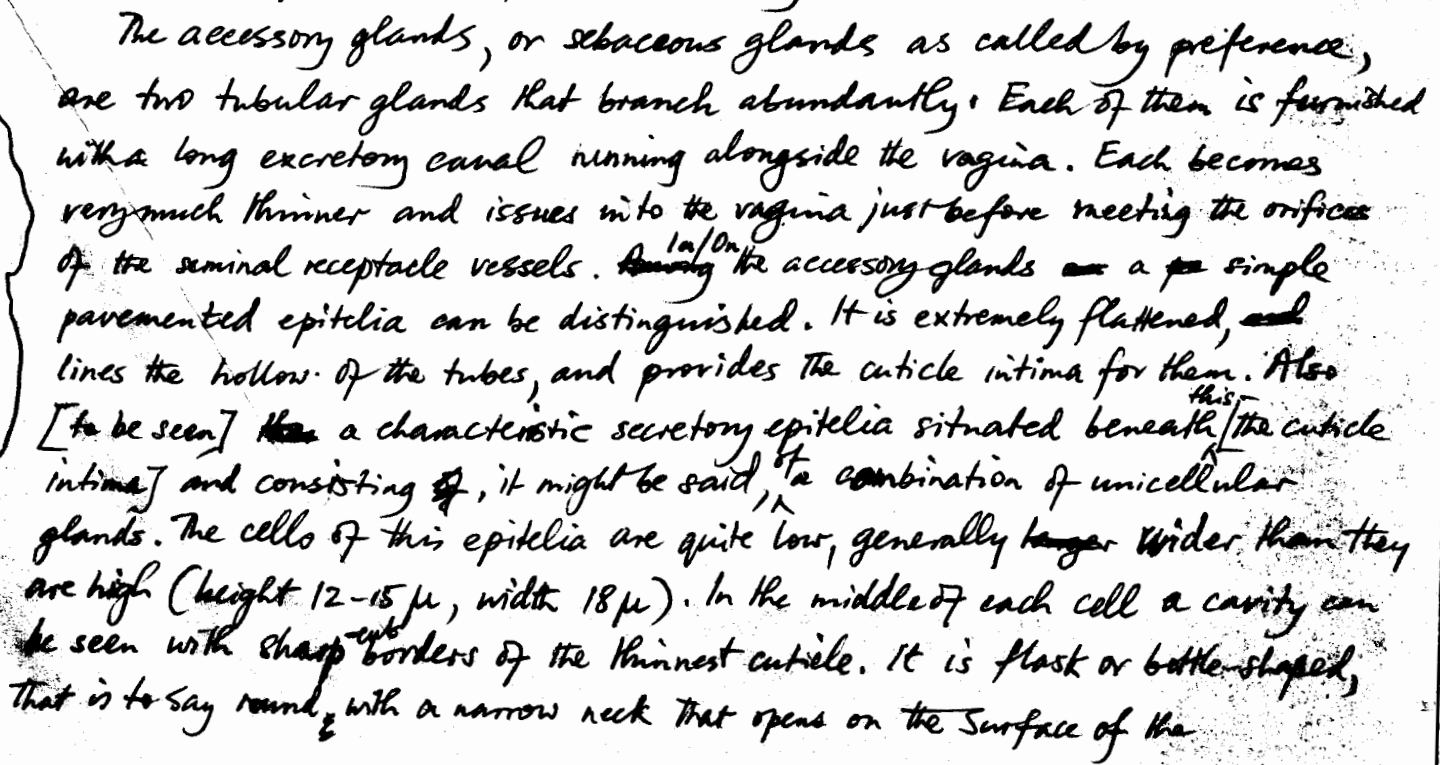 The accessory glands, or sebaceous glands as called by preference,
are two tubular glands that branch abundantly. Each of them is furnished
with a long excretory canal running alongside the vagina. Each becomes
very much thinner and issues into the vagina just before meeting the orifices
of the seminal receptacle vessels. Among In/On the accessory glands a simple
pavemented epitelia can be distinguished. It is extremely flattened, and
lines the hollow of the tubes, and provides the cuticle intima for them. Also
[to be seen] a characteristic secretory epitelia situated beneath this [the cuticle
intima] and consisting of, it might be said, of a combination of unicellular
glands. The cells of this epitelia are quite low, generally larger wider than they
are high (height 12-15 μ, width 18 μ). In the middle of each cell a cavity can
be seen with sharp-cut borders of the thinnest cuticle. It is flask or bottle-shaped,
that is to say round, with a narrow neck that opens on the surface of the